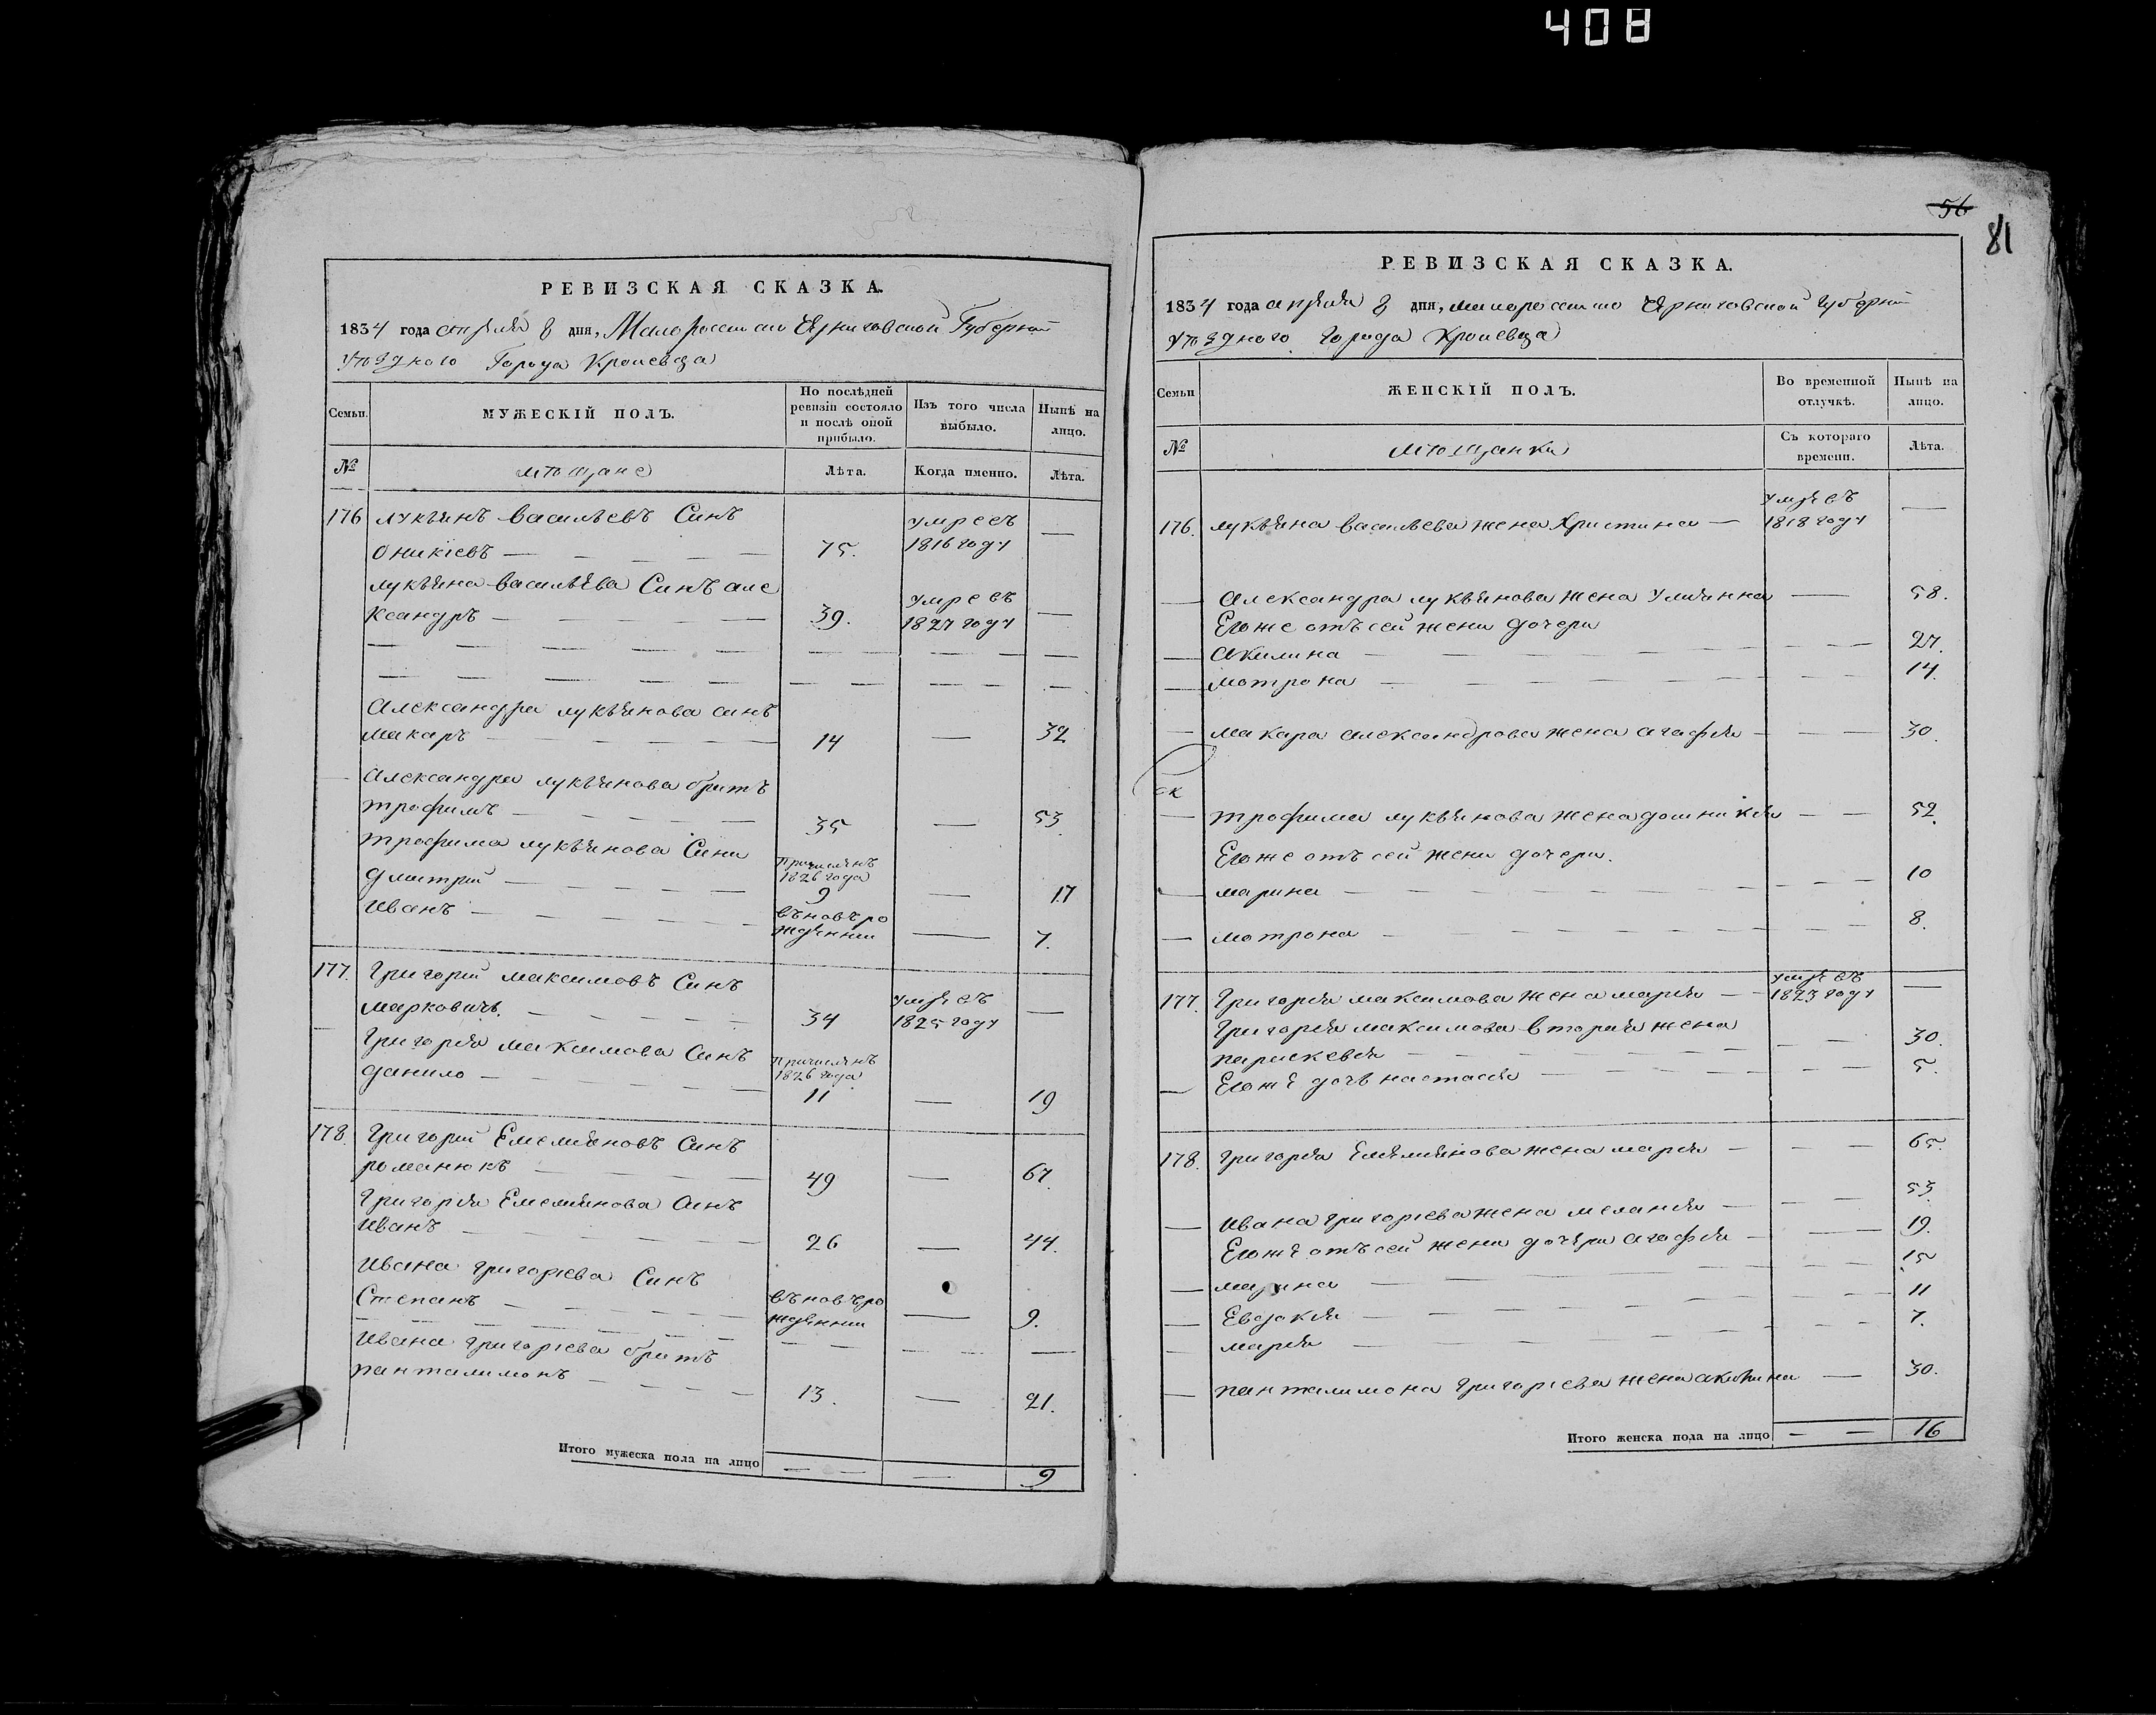 408
РЕВИЗСКАЯ СКАЗКА.
1834 года апреля 8 дня, Малороссийско Черниговской Губернии
Уѣзднаго Города Кролевца
Семьи.
МУЖЕСКІЙ ПОЛЪ.
По послѣдней ревизіи состояло и послѣ оной прибыло.
Изъ того числа выбыло.
Нынѣ на лицо.
№
мѣщане
Лѣта.
Когда именно.
Лѣта.
176 лукьянъ васильевъ Синъ умреєъ
оникіевъ — 75. 1816 году —
лукьяна васильева Синъ але умреєъ
ксандръ — 39. 1827 году —
Александра лукьянова синъ
макаръ — 14 — 32
Александра лукьянова братъ
трофимъ — 35 — 53.
трофима лукьянова Сини причисленъ
дмитрий — 1826 года 9 — 17
иванъ — въновъро жденнии — 7.
177. григорий максимовъ Синъ умреєъ
марковичъ. — 34 1825 году —
григорія максимова Синъ причисленъ 1826 года
данило — 11 — 19
178. григорий Емельяновъ Синъ
романюкъ — 49 — 67.
григорія Емельянова Синъ
иванъ — 26 — 44.
ивана григоріева Синъ
Степанъ — въновъро жденнии — 9.
ивана григоріева братъ
панталимонъ — 13. — 21.
Итого мужеска пола на лицо — — 9
56
81
РЕВИЗСКАЯ СКАЗКА.
1834 года апреля 8 дня, малороссийско Черниговской губернии
Уѣзднаго города Кролевца
Семьи
ЖЕНСКІЙ ПОЛЪ.
Во временной отлучкѣ.
Нынѣ на лицо.
№
мѣщанки
Съ котораго времени.
Лѣта.
176. лукьяна васильева жена Христина — умреєъ 1818 году —
— Александра лукьянова жена Улиянна — 58.
Егоже отъ сей жени дочери
— Акилина — 27.
— мотрона — 14.
— макара александрова жена агафия — 30.
— трофима лукьянова жена домникия — 52.
Егоже отъ сей жени дочери.
— марина — 10
— мотрона — 8.
177. григорія максимова жена мария — умреєъ 1823 году —
григорія максимова вторая жена
параскевия — 30.
— Егоже дочь настасия — 5.
178. григорія Емельянова жена мария — 65.
— ивана григоріева жена мелания — 53.
Егоже отъ сей жени дочери агафия — 19.
— марина — 15
— Евдокия — 11
— мария — 7.
— панталимона григоріева жена акилина — 30.
Итого женска пола на лицо — — 16